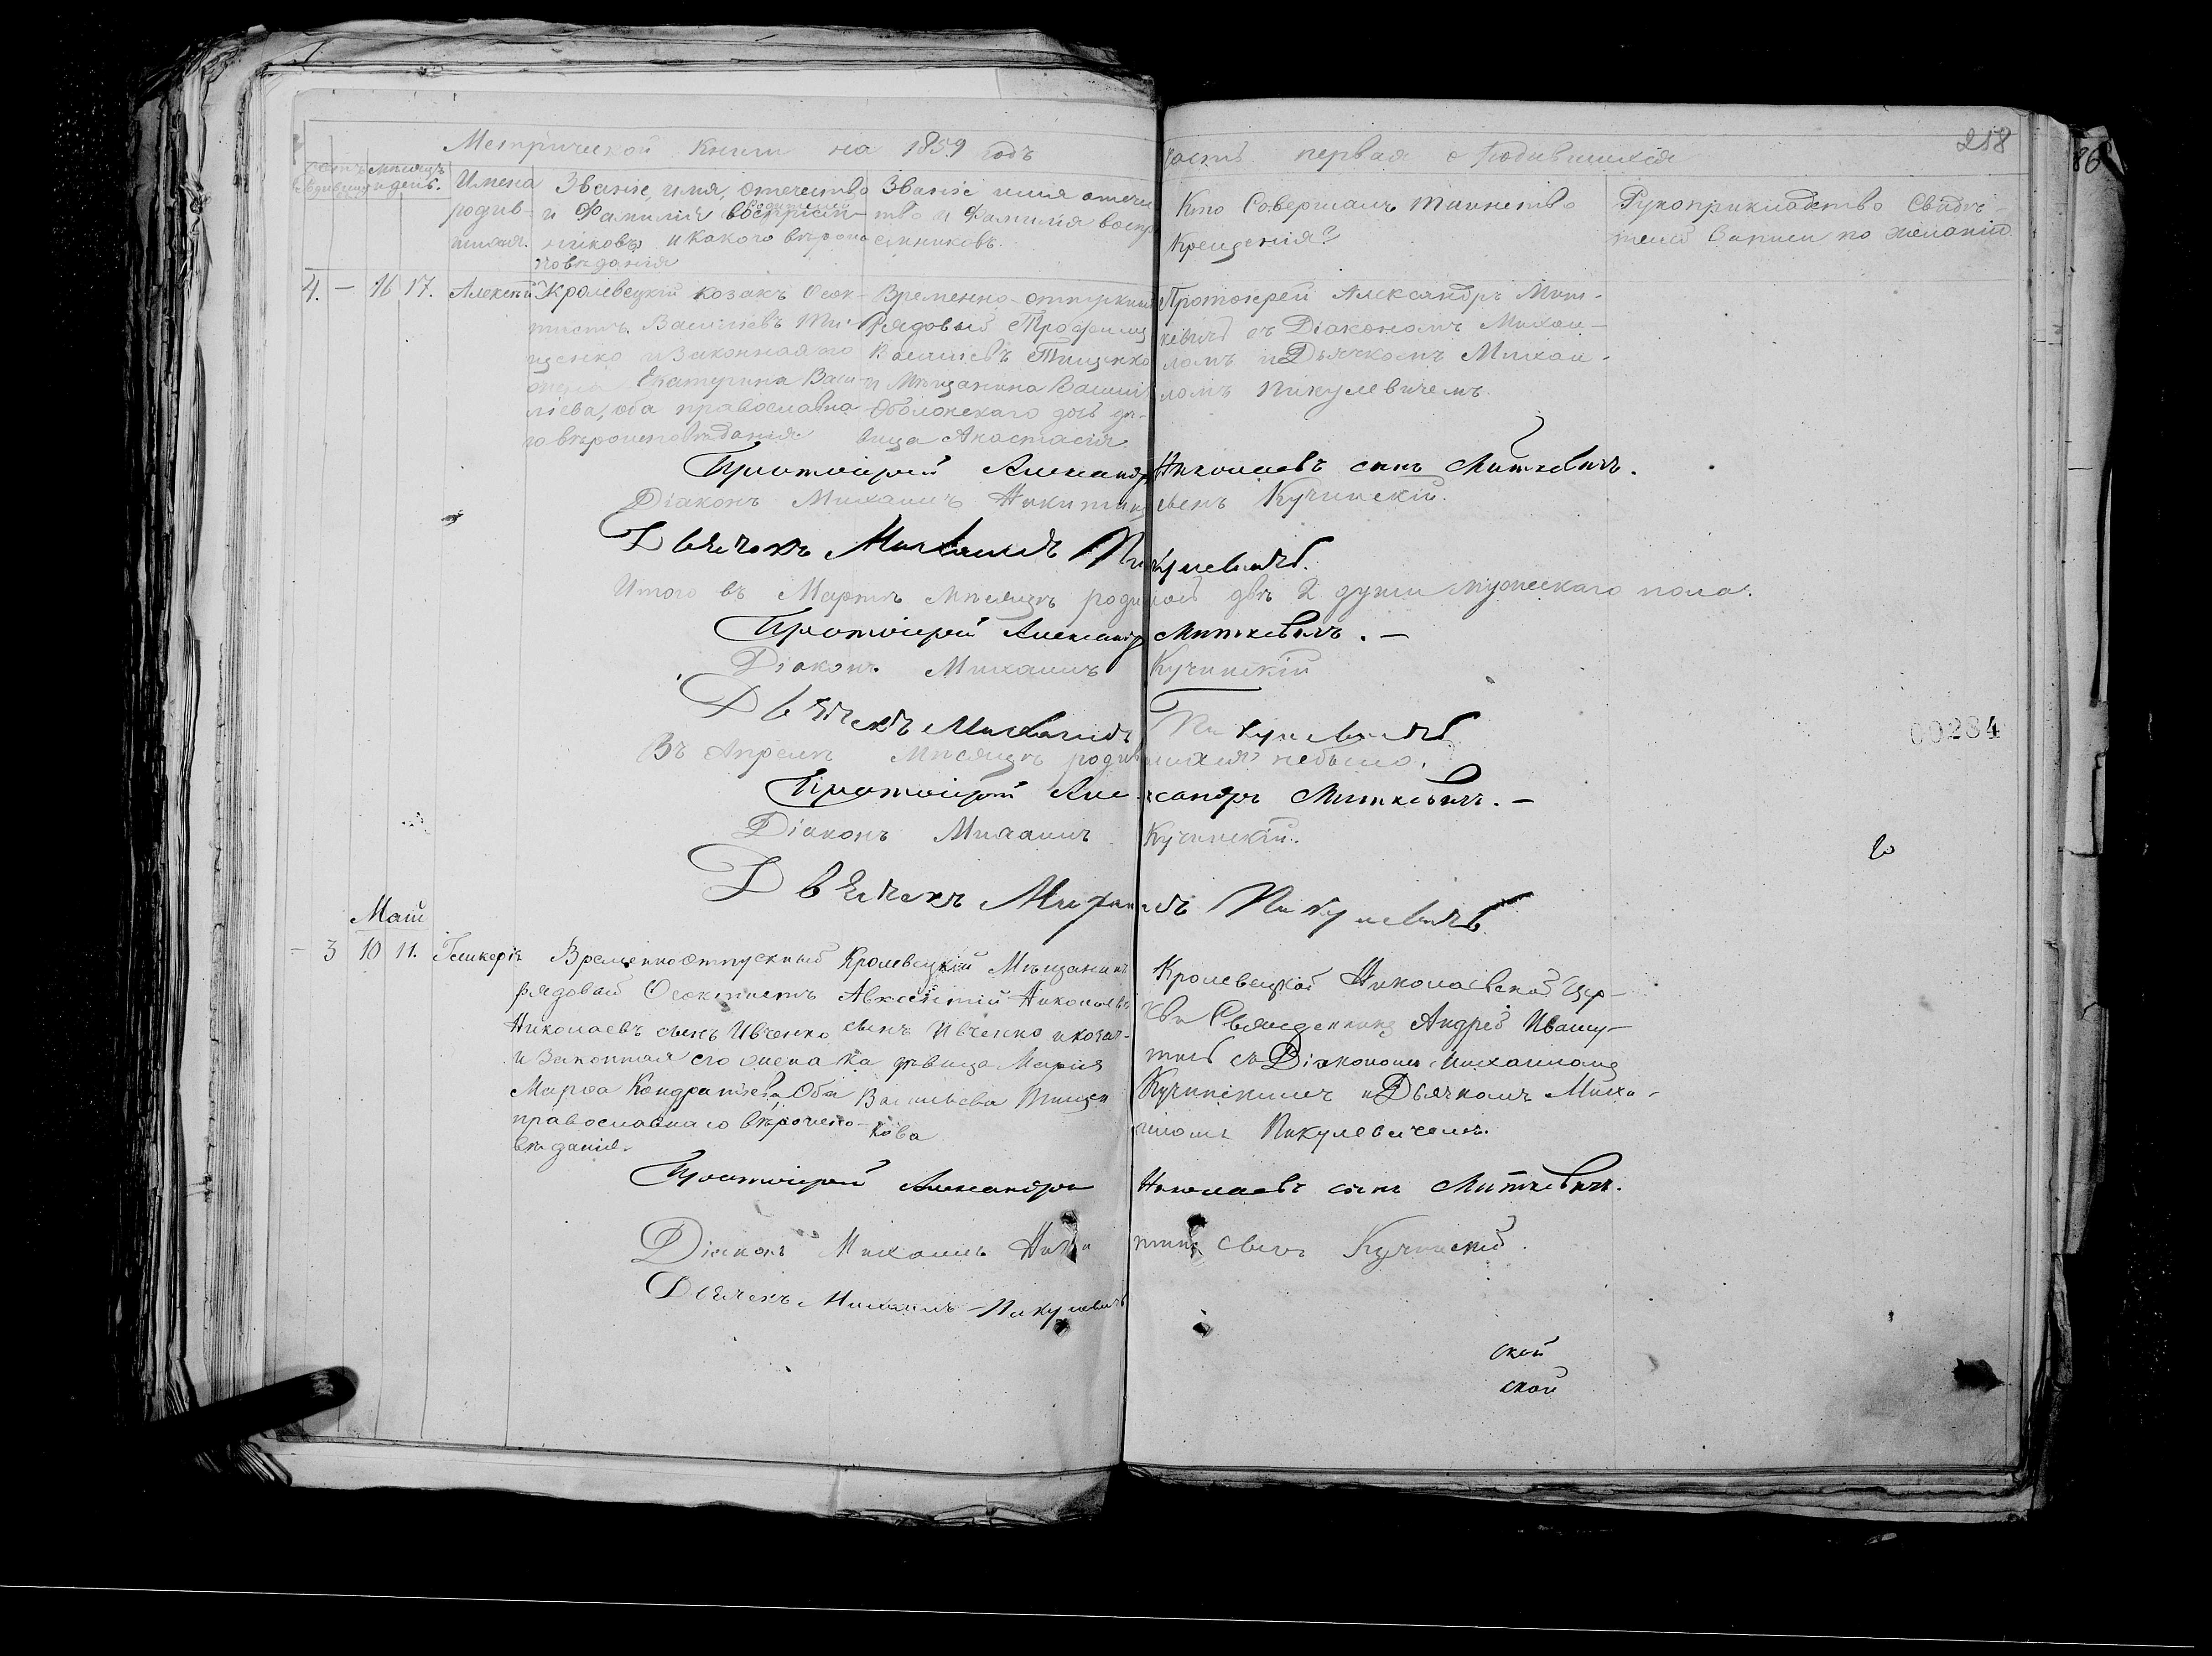 Метрической Книги на 1859 годъ часть первая о Родившихся
218
86
Счетъ родившихся
Мѣсяцъ и день.
Имена родив-
шихся.
Званіе, имя, отечество
и Фамилія Родителей воспріем-
никовъ и какого вѣроис
повѣданія
Званіе имя отече
ство и Фамилія воспр
емниковъ.
Кто Совершалъ таинство
Крещенія?
Рукоприкладство Свидѣ-
телей Записи по желанію
4. — 16 17. Алексѣй
Кролевецкій козакъ Ѳеок-
тистъ Василіевъ Ти-
щенко и законная его
жена Екатерина Васи-
ліева, оба православна
го вѣроисповѣданія
Временно-отпускный
Рядовый Трофимъ
Василіевъ Тищенко
и Мѣщанина Василія
Оболонскаго дочь дѣ-
вица Анастасія
Протоіерей Александръ Мит-
кевичъ съ Діакономъ Михаи-
ломъ и Дьячкомъ Михаи-
ломъ Пикулевичемъ.
Протоіерей Александръ Николаевъ сынъ Миткевичъ.
Діаконъ Михаилъ Никитинъ сынъ Кучинскій.
Дьячокъ Михаилъ Пикулевичъ.
Итого въ Мартѣ мѣсяцѣ родилось двѣ 2 души мужескаго пола.
Протоіерей Александръ Миткевичъ. —
Діаконъ Михаилъ Кучинскій
Дьячекъ Михаилъ Пикулевичъ
Въ Апрелѣ Мѣсяцѣ родившихся небыло.
00284
Протоіерей Александръ Миткевичъ. —
Діаконъ Михаилъ Кучинскій.
Дьячекъ Михаилъ Пикулевичъ
Маій
— 3 10 11. Гликерія
Временноотпускный
рядовый Ѳеоктистъ
Николаевъ сынъ Ивченко
и Законная его жена
Марѳа Кондратіева, Оба
православнаго вѣроиспо-
вѣданія.
Кролевецкій Мѣщанинъ
Авксентій Николаевъ
сынъ Ивченко и козач-
ка дѣвица Марія
Васильева Тищен
кова
Кролевецкой Николаевской Цер-
кви Священникъ Андрей Ивашу-
тичъ съ Діакономъ Михаиломъ
Кучинскимъ и Дьячкомъ Миха-
иломъ Пикулевичемъ.
Протоіерей Александръ Николаевъ сынъ Миткевичъ.
Діаконъ Михаилъ Никитинъ сынъ Кучинскій.
Дьячекъ Михаилъ Пикулевичъ
ской
ской